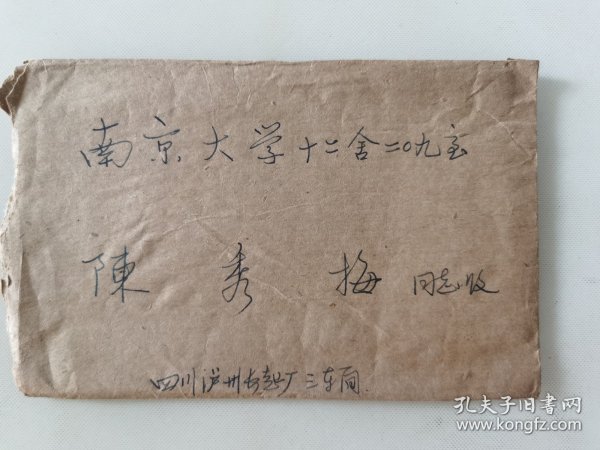 南京大学十二舍二〇九室
陳秀梅 同志收
四川泸州长起厂三车间
孔夫子旧书网
www.kongfz.com